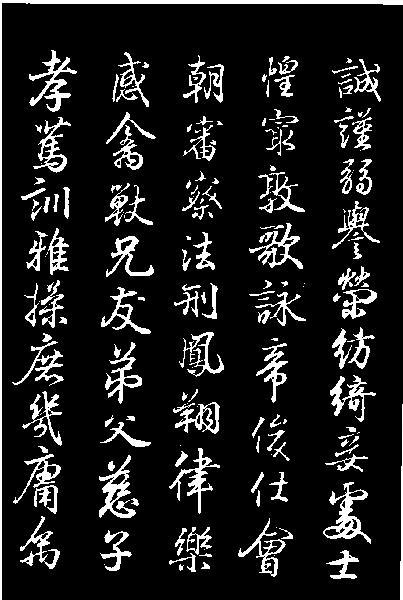 誠謹弱譽榮紡綺妾處士
惶敦歌詠帝俊仕會
朝審察法刑鳳翔律樂
感禽獸兄友弟父慈子
孝篤訓雅操庶幾庸